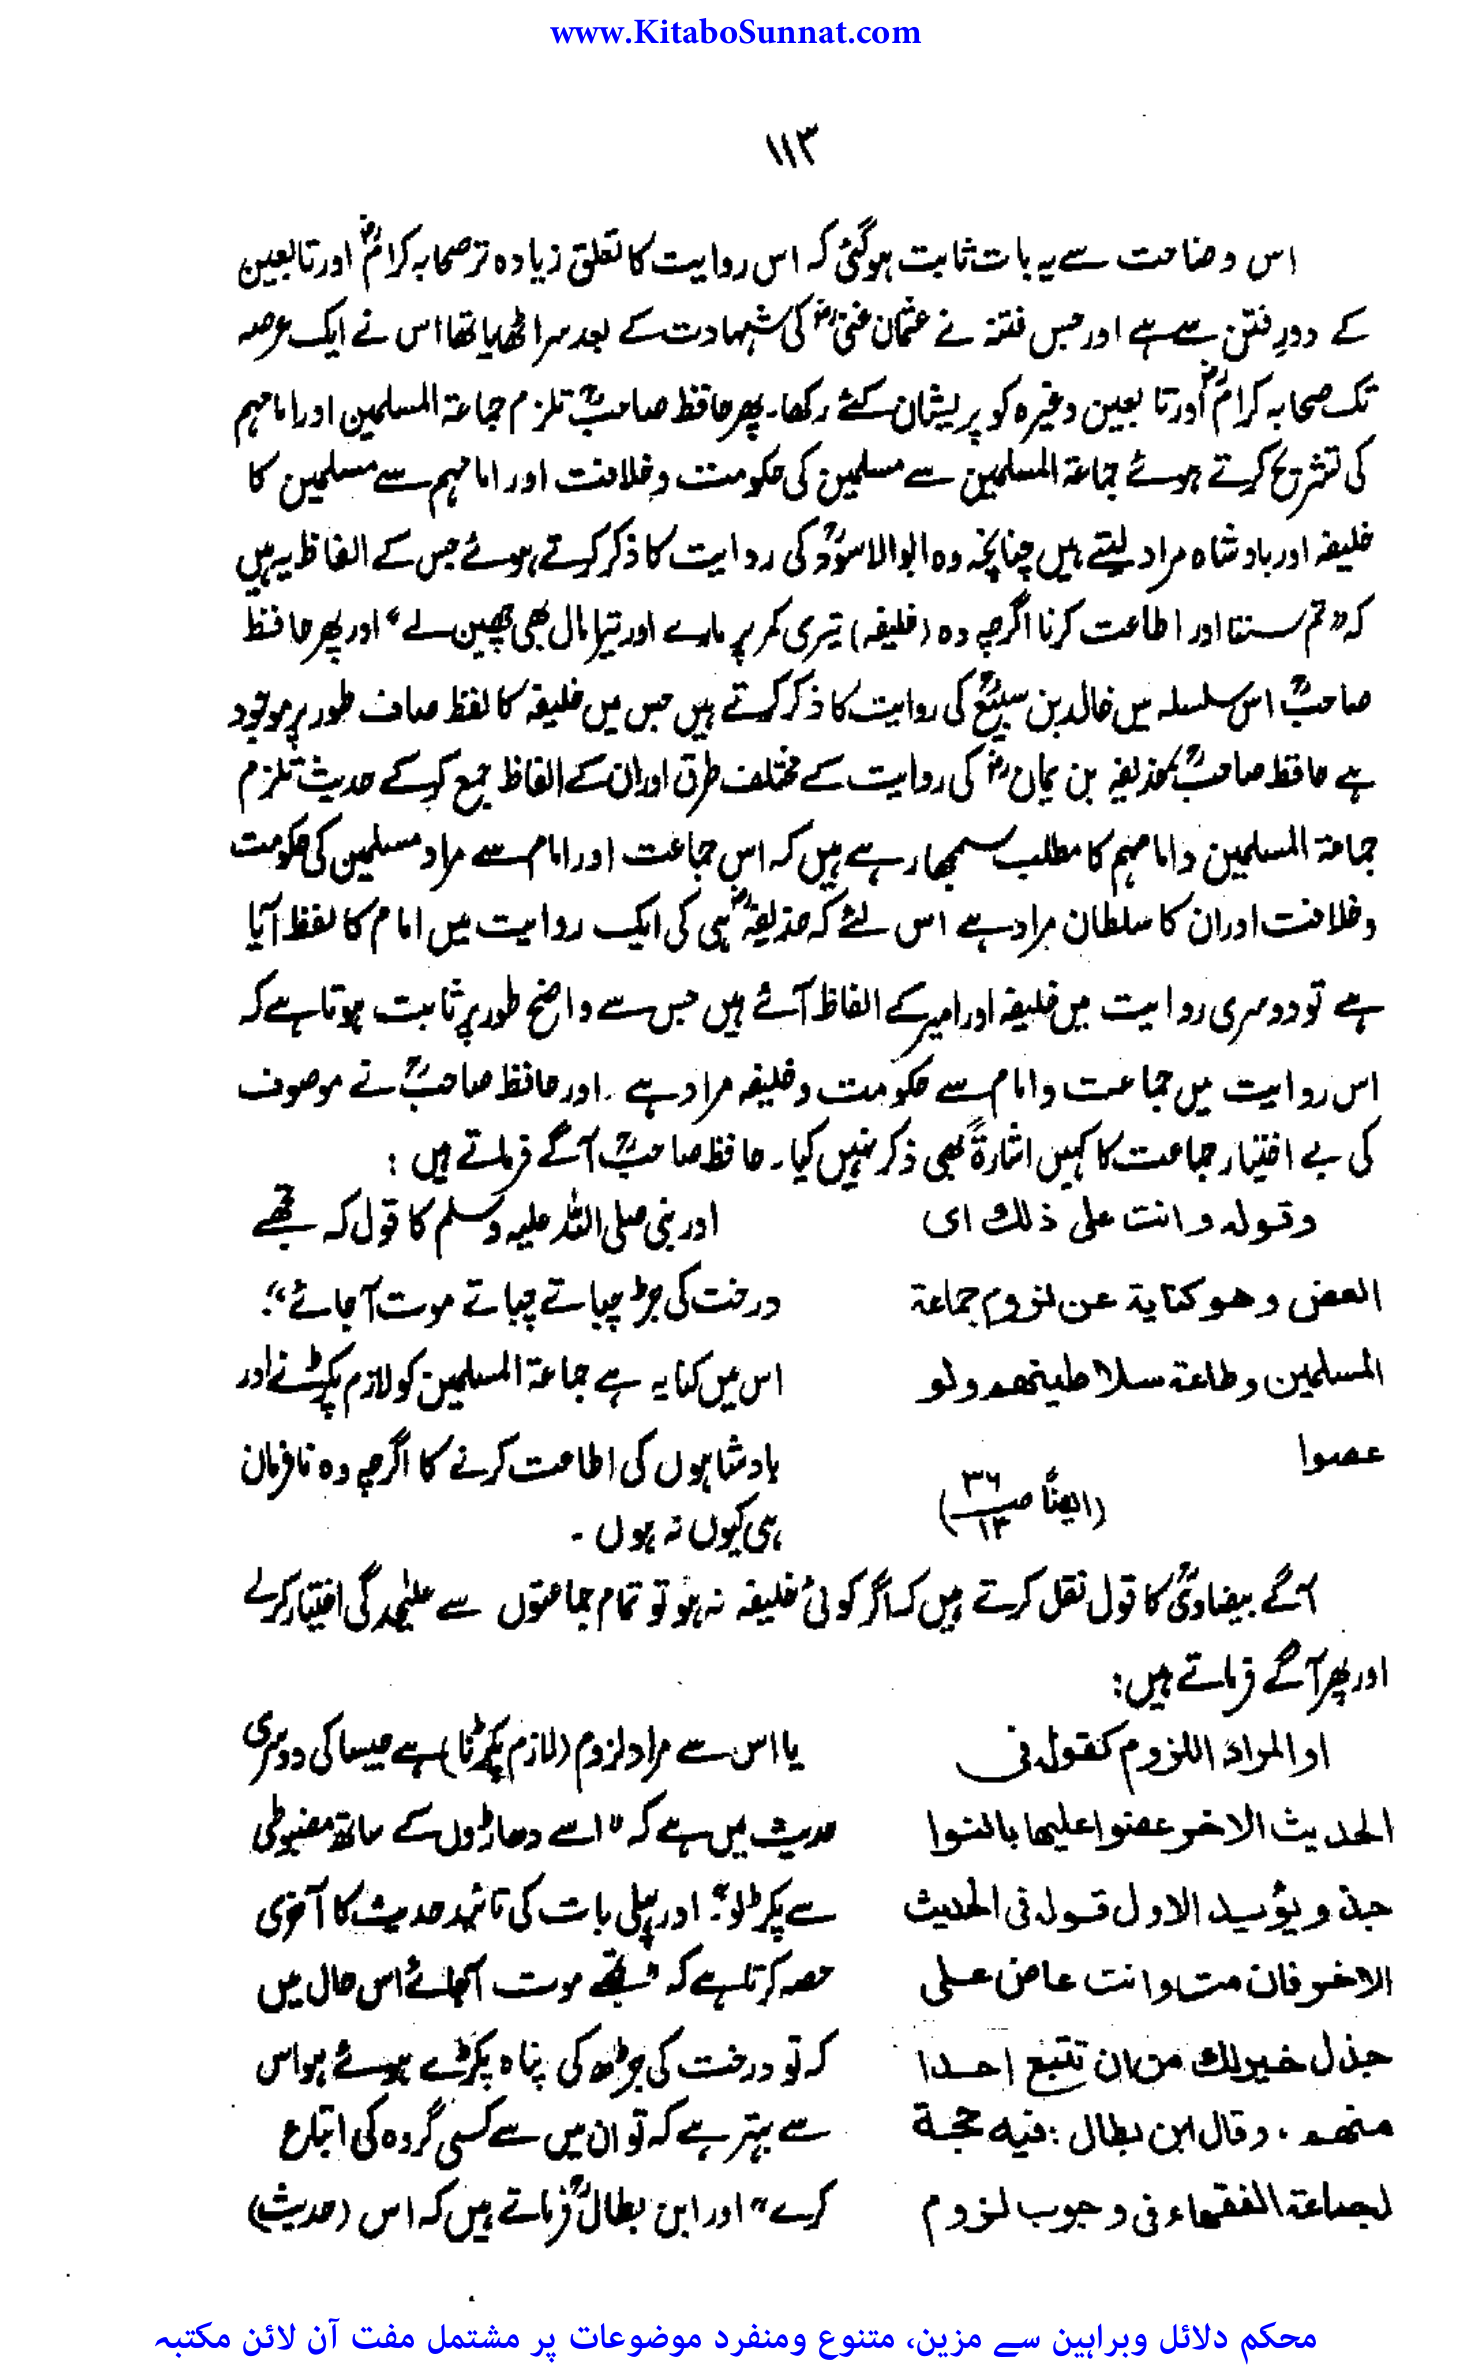 www.KitaboSunnat.com
۱۱۳
اس وضاحت سے یہ بات ثابت ہوگئی کہ اس روایت کا تعلق زیادہ تر صحابہ کرامؓ اور تابعین
کے دورِ فتن سے ہے اور جس فتنہ نے عثمان غنیؓ کی شہادت کے بعد سر اٹھایا تھا اس نے ایک عرصہ
تک صحابہ کرامؓ اور تابعین وغیرہ کو پریشان کئے رکھا۔ پھر حافظ صاحبؒ تلزم جماعۃ المسلمین اور امامہم
کی تشریح کرتے ہوئے جماعۃ المسلمین سے مسلمین کی حکومت و خلافت اور امامہم سے مسلمین کا
خلیفہ اور بادشاہ مراد لیتے ہیں چنانچہ وہ ابوالاسودؒ کی روایت کا ذکر کرتے ہوئے جس کے الفاظ یہ ہیں
کہ "تم سننا اور اطاعت کرنا اگرچہ وہ (خلیفہ) تیری کمر پر مارے اور تیرا مال بھی چھین لے" اور پھر حافظ
صاحبؒ اس سلسلہ میں خالد بن سبیعؒ کی روایت کا ذکر کرتے ہیں جس میں خلیفہ کا لفظ صاف طور پر موجود
ہے حافظ صاحبؒ حذیفہ بن یمانؓ کی روایت کے مختلف طرق اور ان کے الفاظ جمع کرکے حدیث تلزم
جماعۃ المسلمین وامامہم کا مطلب سمجھا رہے ہیں کہ اس جماعت اور امام سے مراد مسلمین کی حکومت
و خلافت اور ان کا سلطان مراد ہے اس لئے کہ حذیفہؓ ہی کی ایک روایت میں امام کا لفظ آیا
ہے تو دوسری روایت میں خلیفہ اور امیر کے الفاظ آئے ہیں جس سے واضح طور پر ثابت ہوتا ہے کہ
اس روایت میں جماعت و امام سے حکومت و خلیفہ مراد ہے۔ اور حافظ صاحبؒ نے موصوف
کی بے اختیار جماعت کا کہیں اشارۃً بھی ذکر نہیں کیا۔ حافظ صاحبؒ آگے فرماتے ہیں:
وقولہ وانت علی ذلک ای
العض وھو کنایۃ عن لزوم جماعۃ
المسلمین وطاعۃ سلاطینھم ولو
عصوا
(ایضاً ص ۳۶/۱۳)
اور نبی صلی اللہ علیہ وسلم کا قول کہ تجھے
درخت کی جڑ چباتے چباتے موت آجائے"۔
اس میں کنایہ ہے جماعۃ المسلمین کو لازم پکڑنے اور
بادشاہوں کی اطاعت کرنے کا اگرچہ وہ نافرمان
ہی کیوں نہ ہوں۔
آگے بیضاویؒ کا قول نقل کرتے ہیں کہ اگر کوئی خلیفہ نہ ہو تو تمام جماعتوں سے علیٰحدگی اختیار کرلے
اور پھر آگے فرماتے ہیں:
او المراد اللزوم کقولہ فی
الحدیث الاخر عضوا علیھا بالنوا
جذ ویؤید الاول قولہ فی الحدیث
الاخر فان مت وانت عاض علی
جذل خیر لک من ان تتبع احدا
منھم . وقال ابن بطال : فیہ حجۃ
لجماعۃ الفقھاء فی وجوب لزوم
یا اس سے مراد لزوم (لازم پکڑنا) ہے جیسا کی دوسری
حدیث میں ہے کہ "اسے دھاڑوں کے ساتھ مضبوطی
سے پکڑ لو"۔ اور پہلی بات کی تائید حدیث کا آخری
حصہ کرتا ہے کہ "تجھے موت آجائے اس حال میں
کہ تو درخت کی جڑھ کی پناہ پکڑے ہوئے ہو اس
سے بہتر ہے کہ تو ان میں سے کسی گروہ کی اتباع
کرے" اور ابن بطالؒ فرماتے ہیں کہ اس (حدیث)
محکم دلائل وبراہین سے مزین، متنوع ومنفرد موضوعات پر مشتمل مفت آن لائن مکتبہ